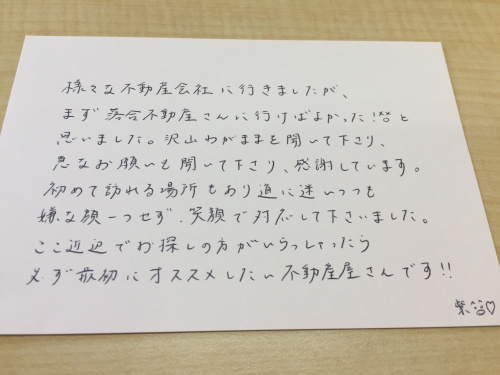 様々な不動産会社に行きましたが、
まず落合不動産さんに行けばよかった!!と
思いました。沢山わがままを聞いて下さり、
急なお願いも聞いて下さり、感謝しています。
初めて訪れる場所もあり道に迷いつつも
嫌な顔一つせず、笑顔で対応して下さいました。
ここ近辺でお探しの方がいらっしゃったら
必ず最初にオススメしたい不動産屋さんです!!